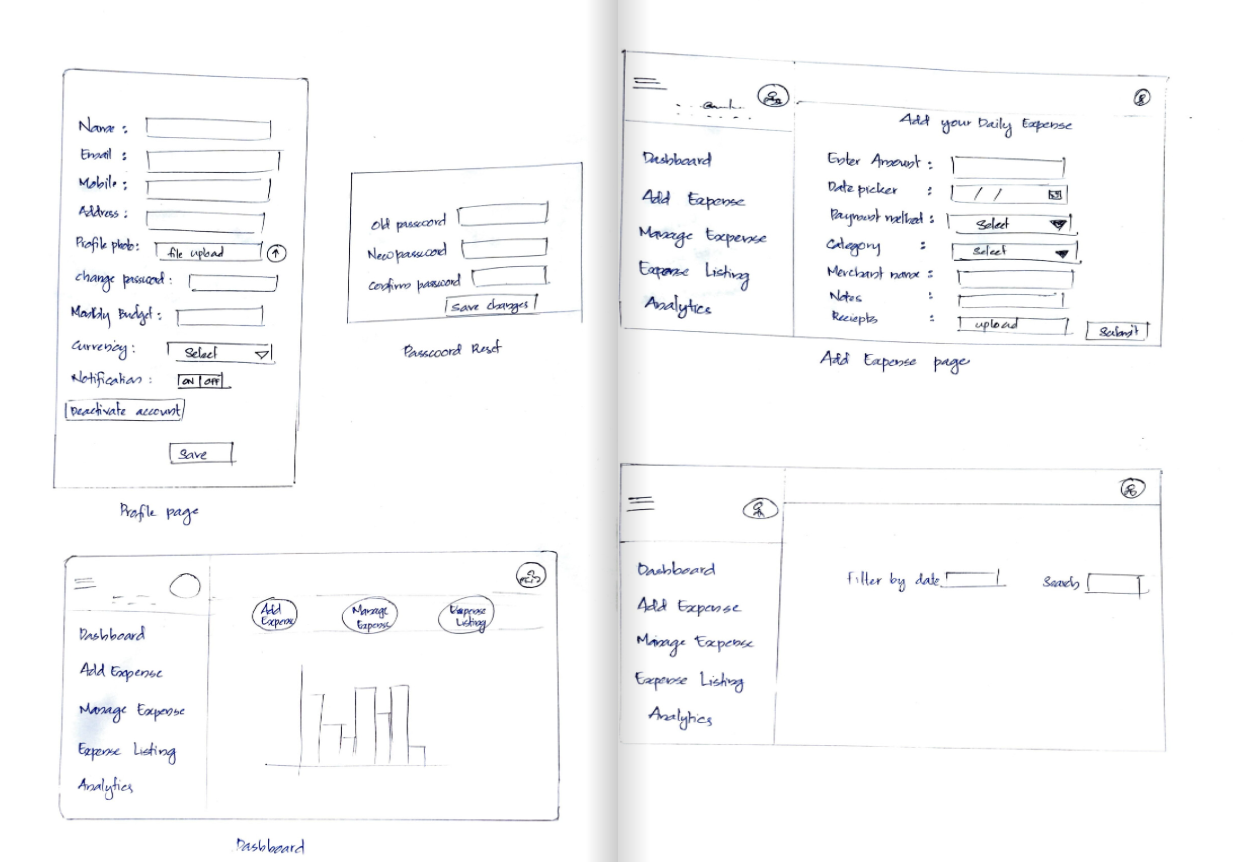 Name :
Email :
Mobile :
Address :
Profile photo: file upload
change password :
Monthly Budget :
Currency : Select
Notification : ON OFF
Deactivate account
Save
Profile page
Old password
New password
Confirm password
Save changes
Password Reset
Dashboard
Add Expense
Manage Expense
Expense Listing
Analytics
Add
Expense
Manage
Expense
Expense
Listing
Dashboard
Dashboard
Add Expense
Manage Expense
Expense Listing
Analytics
Add your Daily Expense
Enter Amount :
Date picker : / /
Payment method : Select
Category : Select
Merchant name :
Notes :
Reciepts : upload
Submit
Add Expense page
Dashboard
Add Expense
Manage Expense
Expense Listing
Analytics
Filter by date
Search